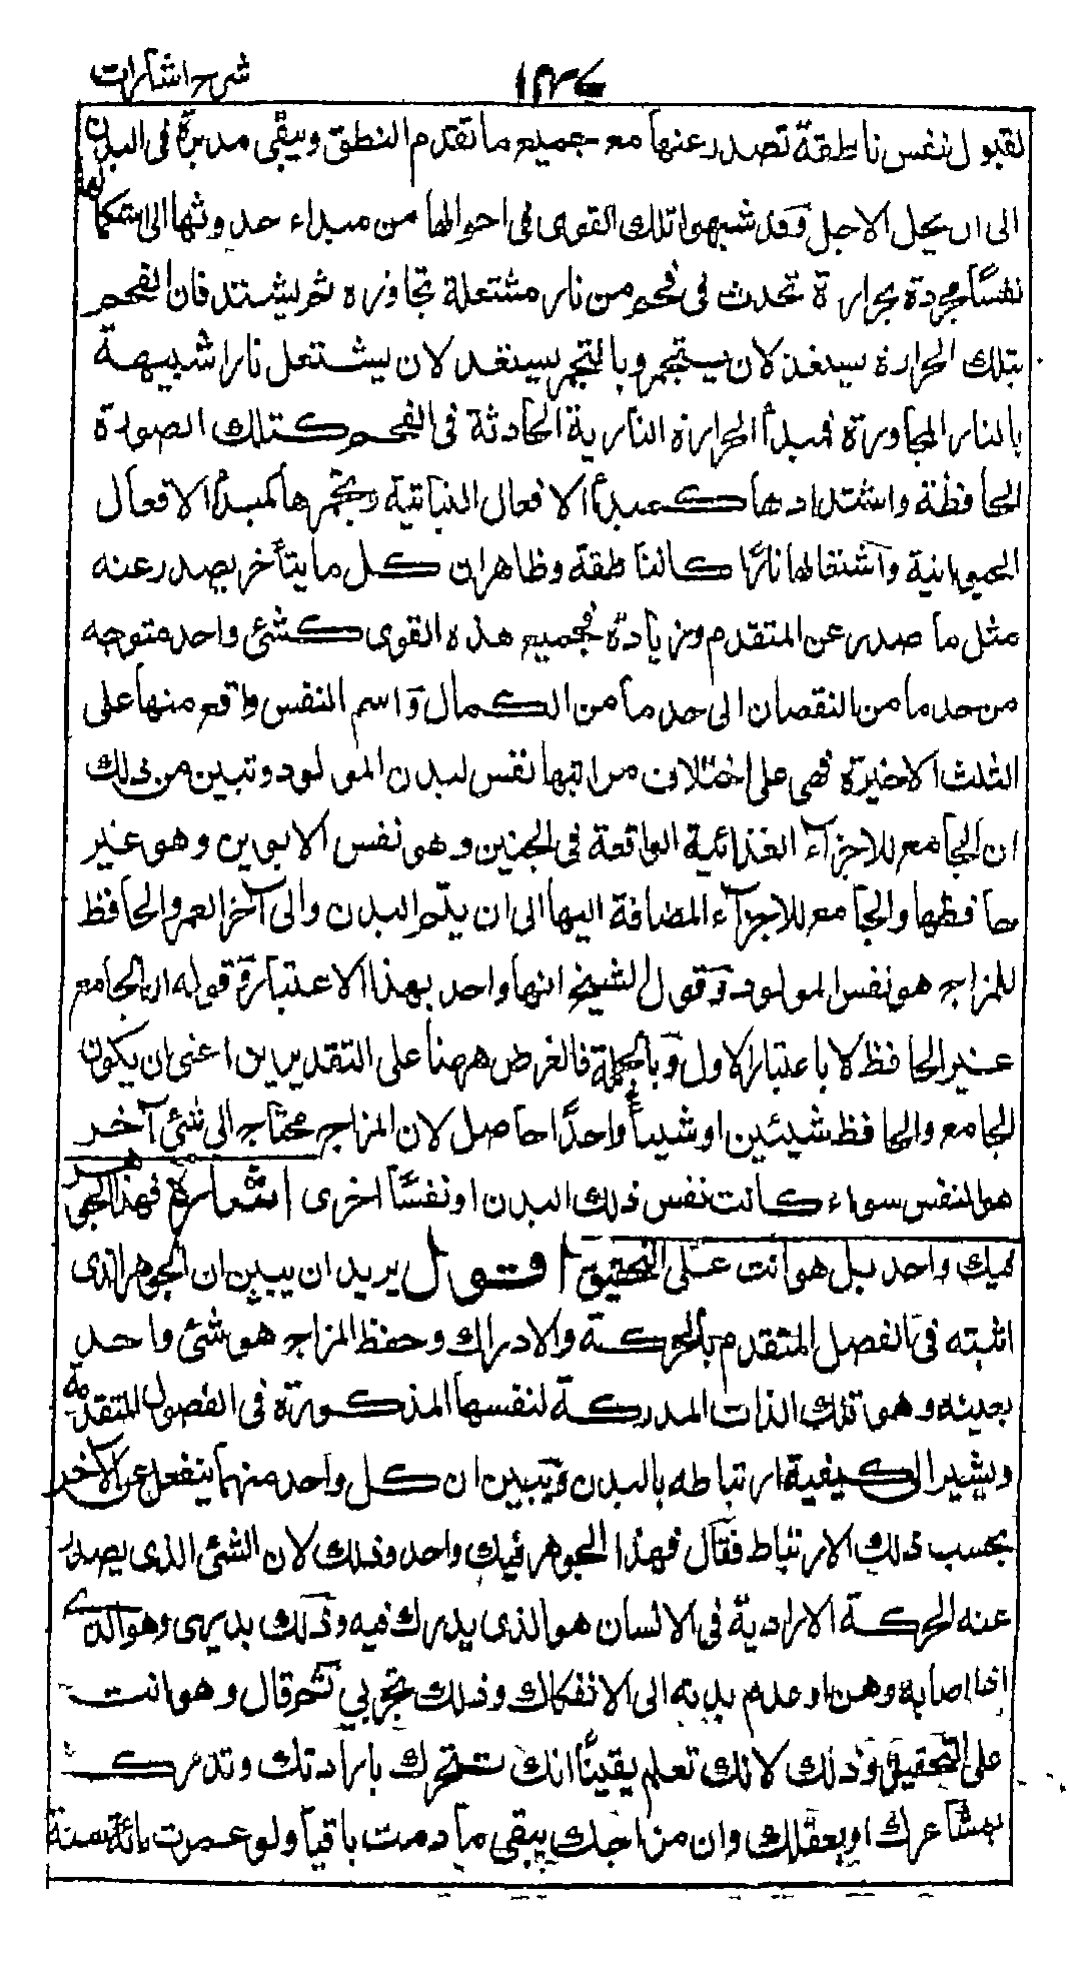 شرح اشارات
لقبول نفس ناطقة تصدر عنها مع جميع ما تقدم النطق ويبقى مدبرة فى البدن
الى ان يحل الاجل وقد شبهوا تلك القوى فى احوالها من مبداء حدوثها الى استكمالها
نفسًا مجردة بحرارة تحدث فى فحم من نار مشتعلة تجاوره ثم يشتد فان الفحم
بتلك الحرارة يستعد لان يتجمر وبالتجمر يستعد لان يشتعل نارا شبيهة
بالنار المجاورة فمبدأ الحرارة النارية الحادثة فى الفحم كتلك الصورة
الحافظة واشتدادها كمبدأ الافعال النباتية وتجمرها كمبدأ الافعال
الحيوانية واشتعالها نارًا كالناطقة وظاهر ان كل ما يتأخر يصدر عنه
مثل ما صدر عن المتقدم وزيادة فجميع هذه القوى كشئ واحد متوجه
من حد ما من النقصان الى حد ما من الكمال واسم النفس واقع منها على
الثلث الاخيرة فهى على اختلاف مراتبها نفس لبدن المولود وتبين من ذلك
ان الجامع للاجزآء الغذائية الواقعة فى الجنين وهو نفس الابوين وهو غير
حافظها والجامع للاجزآء المضافة اليها الى ان يتم البدن والى آخر العمر والحافظ
للمزاج هو نفس المولود وقول الشيخ انها واحد بهذا الاعتبار وقوله ان الجامع
غير الحافظ لا باعتبار الاول وبالجملة فالغرض ههنا على التقديرين اعنى ان يكون
الجامع والحافظ شيئين او شيئاً واحدًا حاصل لان المزاج محتاج الى شئ آخر
هو النفس سواء كانت نفس ذلك البدن او نفسًا اخرى اشارة فهذا الجوهر
فيك واحد بل هو انت على التحقيق اقول يريد ان يبين ان الجوهر الذى
اثبته فى الفصل المتقدم بالحركة والادراك وحفظ المزاج هو شئ واحد
بعينه وهو تلك الذات المدركة لنفسها المذكورة فى الفصول المتقدمة
ويشير الى كيفية ارتباطه بالبدن ويبين ان كل واحد منهما ينفعل عن الآخر
بحسب ذلك الارتباط فقال فهذا الجوهر فيك واحد وذلك لان الشئ الذى يصدر
عنه الحركة الارادية فى الانسان هو الذى يدرك فيه وذلك بديهى وهو الذى
اذا اصابه وهن او عدم بدنه الى الانفكاك وذلك تجربي ثم قال وهو انت
على التحقيق وذلك لانك تعلم يقينًا انك تتحرك بارادتك وتدرك
بمشاعرك او بعقلك وان مزاجك يبقى ما دمت باقيا ولو عمرت مائة سنة